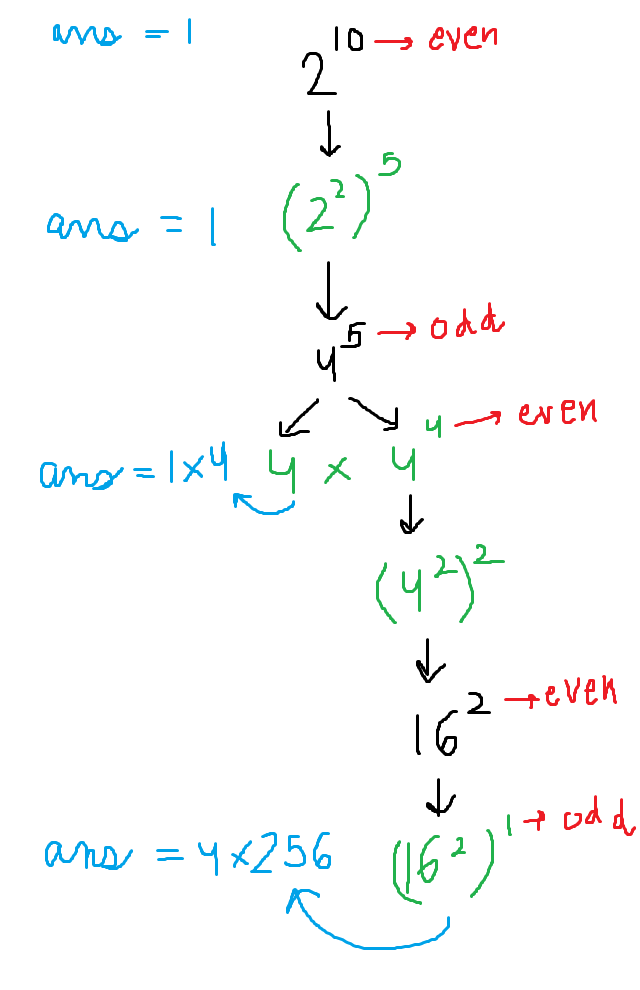 ans = 1 2^10 → even
ans = 1 (2^2)^5
4^5 → odd
ans = 1×4 4 × 4^4 → even
(4^2)^2
16^2 → even
ans = 4×256 (16^2)^1 → odd